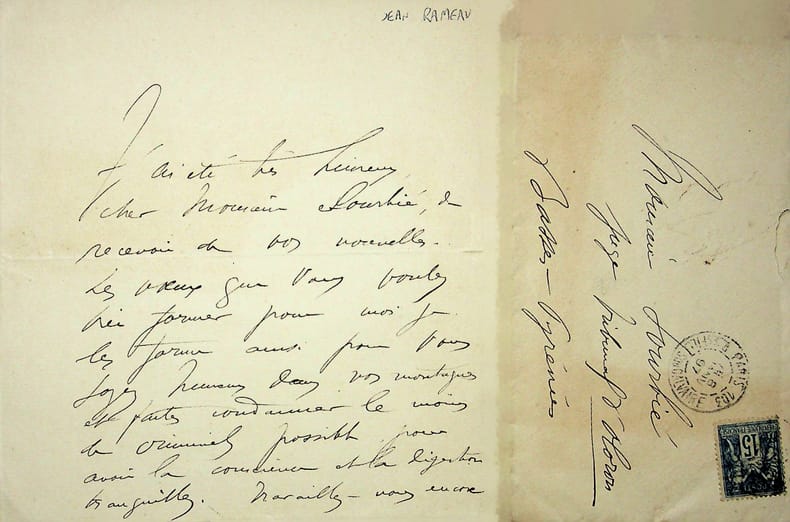 JEAN RAMEAU
J'ai été très heureux,
cher Monsieur Lourbié, de
recevoir de vos nouvelles.
Les vœux que vous voulez
bien former pour moi je
les forme aussi pour vous
Soyez heureux dans vos montagnes
et faites condamner le moins
de criminels possible pour
avoir la conscience et la digestion
tranquilles. Travaillez-vous encore
Monsieur Lourbié
Juge Tribunal d'Oloron
Basses-Pyrénées
PARIS 103
97
15